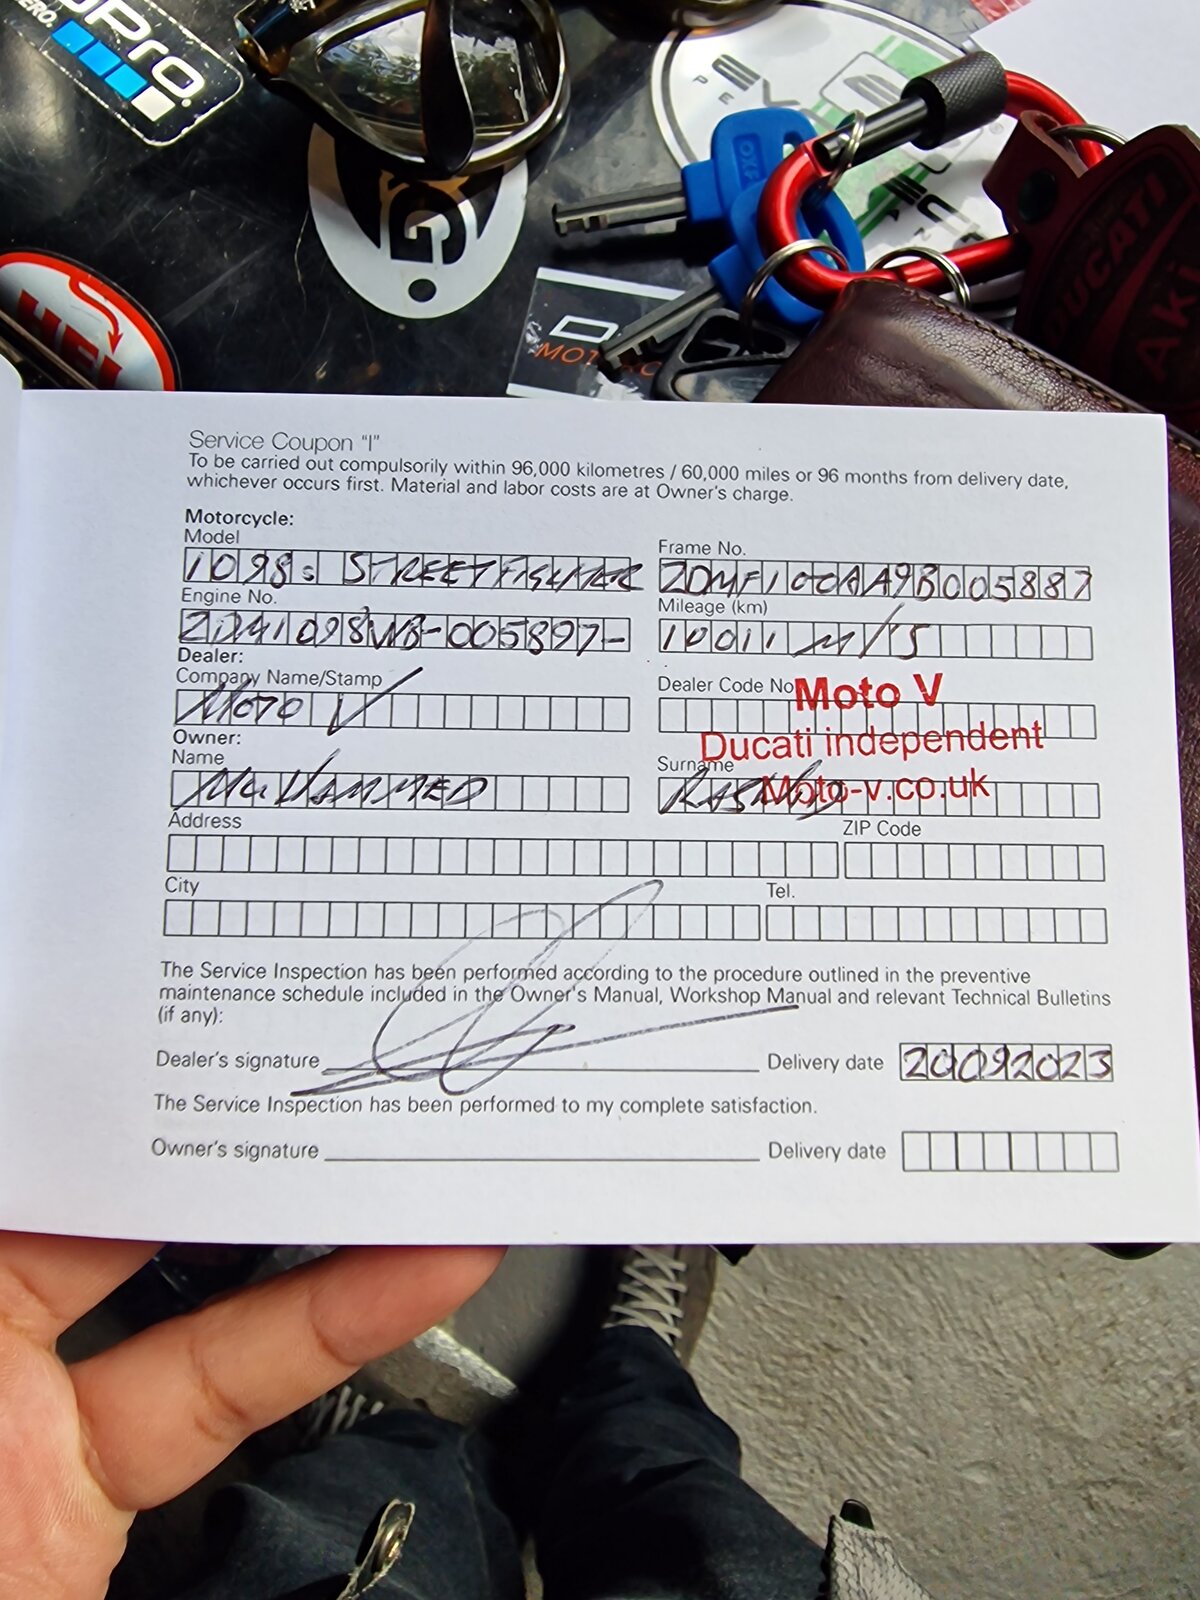 GoPro
HERO.
HEL
G
OXFO
DUCATI
Service Coupon "I"
To be carried out compulsorily within 96,000 kilometres / 60,000 miles or 96 months from delivery date,
whichever occurs first. Material and labor costs are at Owner's charge.
Motorcycle:
Model
1098s STREETFIGHTER
Frame No.
ZDMF100AA9B005887
Engine No.
ZDM1098WB-005897-
Mileage (km)
10011 M/S
Dealer:
Company Name/Stamp
Moto V
Dealer Code No
Moto V
Ducati independent
Moto-v.co.uk
Owner:
Name
MuHAMMED
Surname
Address
ZIP Code
City
Tel.
The Service Inspection has been performed according to the procedure outlined in the preventive
maintenance schedule included in the Owner's Manual, Workshop Manual and relevant Technical Bulletins
(if any):
Dealer's signature
Delivery date 20092023
The Service Inspection has been performed to my complete satisfaction.
Owner's signature
Delivery date